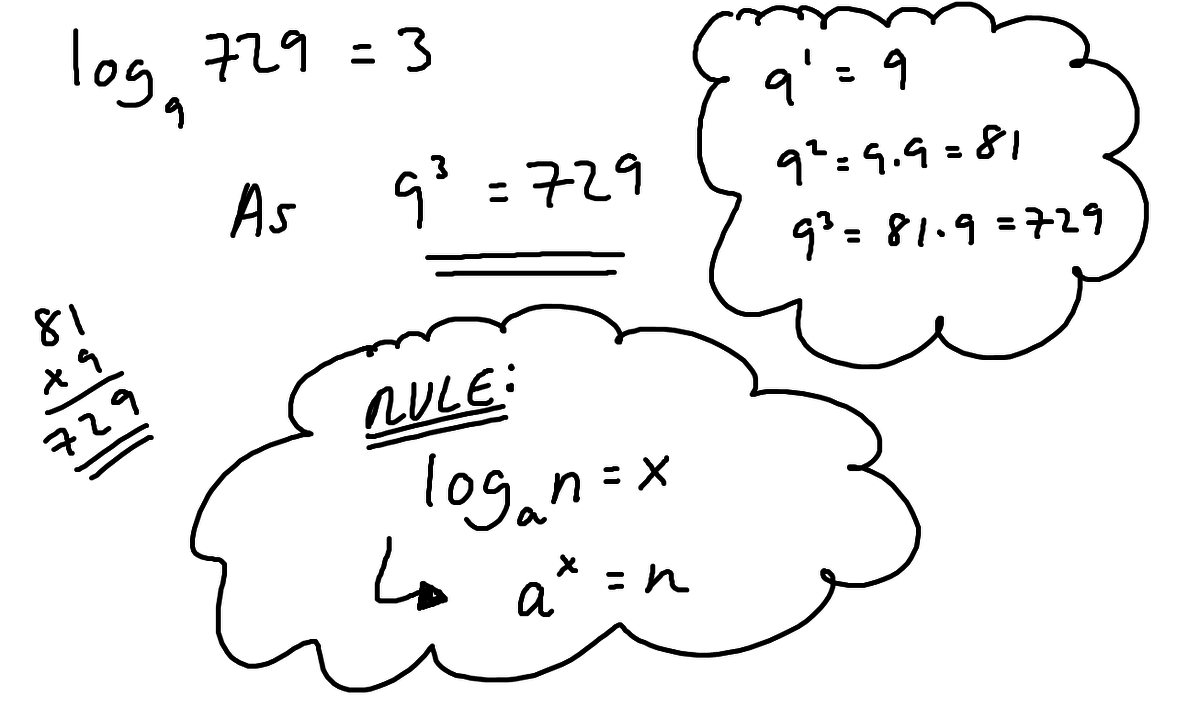 log₉ 729 = 3
As 9³ = 729
9¹ = 9
9² = 9.9 = 81
9³ = 81.9 = 729
81
x 9
729
RULE:
logₐ n = x
aˣ = n